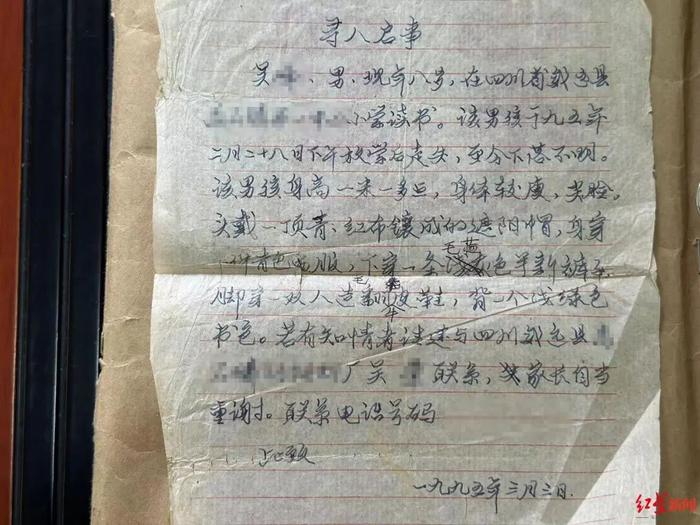 寻人启事
吴 、男、现年八岁,在四川省威远县
小学读书。该男孩于九五年
二月二十八日下午放学后走失,至今下落不明。
该男孩身高一米一多点,身体较瘦,尖脸。
头戴一顶青、红布镶成的遮阳帽,身穿
一件青色 服,下穿一条毛蓝色半新裤子
脚穿一双人造 皮鞋,背一个浅绿色
书包。若有知情者请速与四川威远县
厂吴 联系,家长自当
重谢。联系电话号码
此致
一九九五年三月三日.
红星新闻